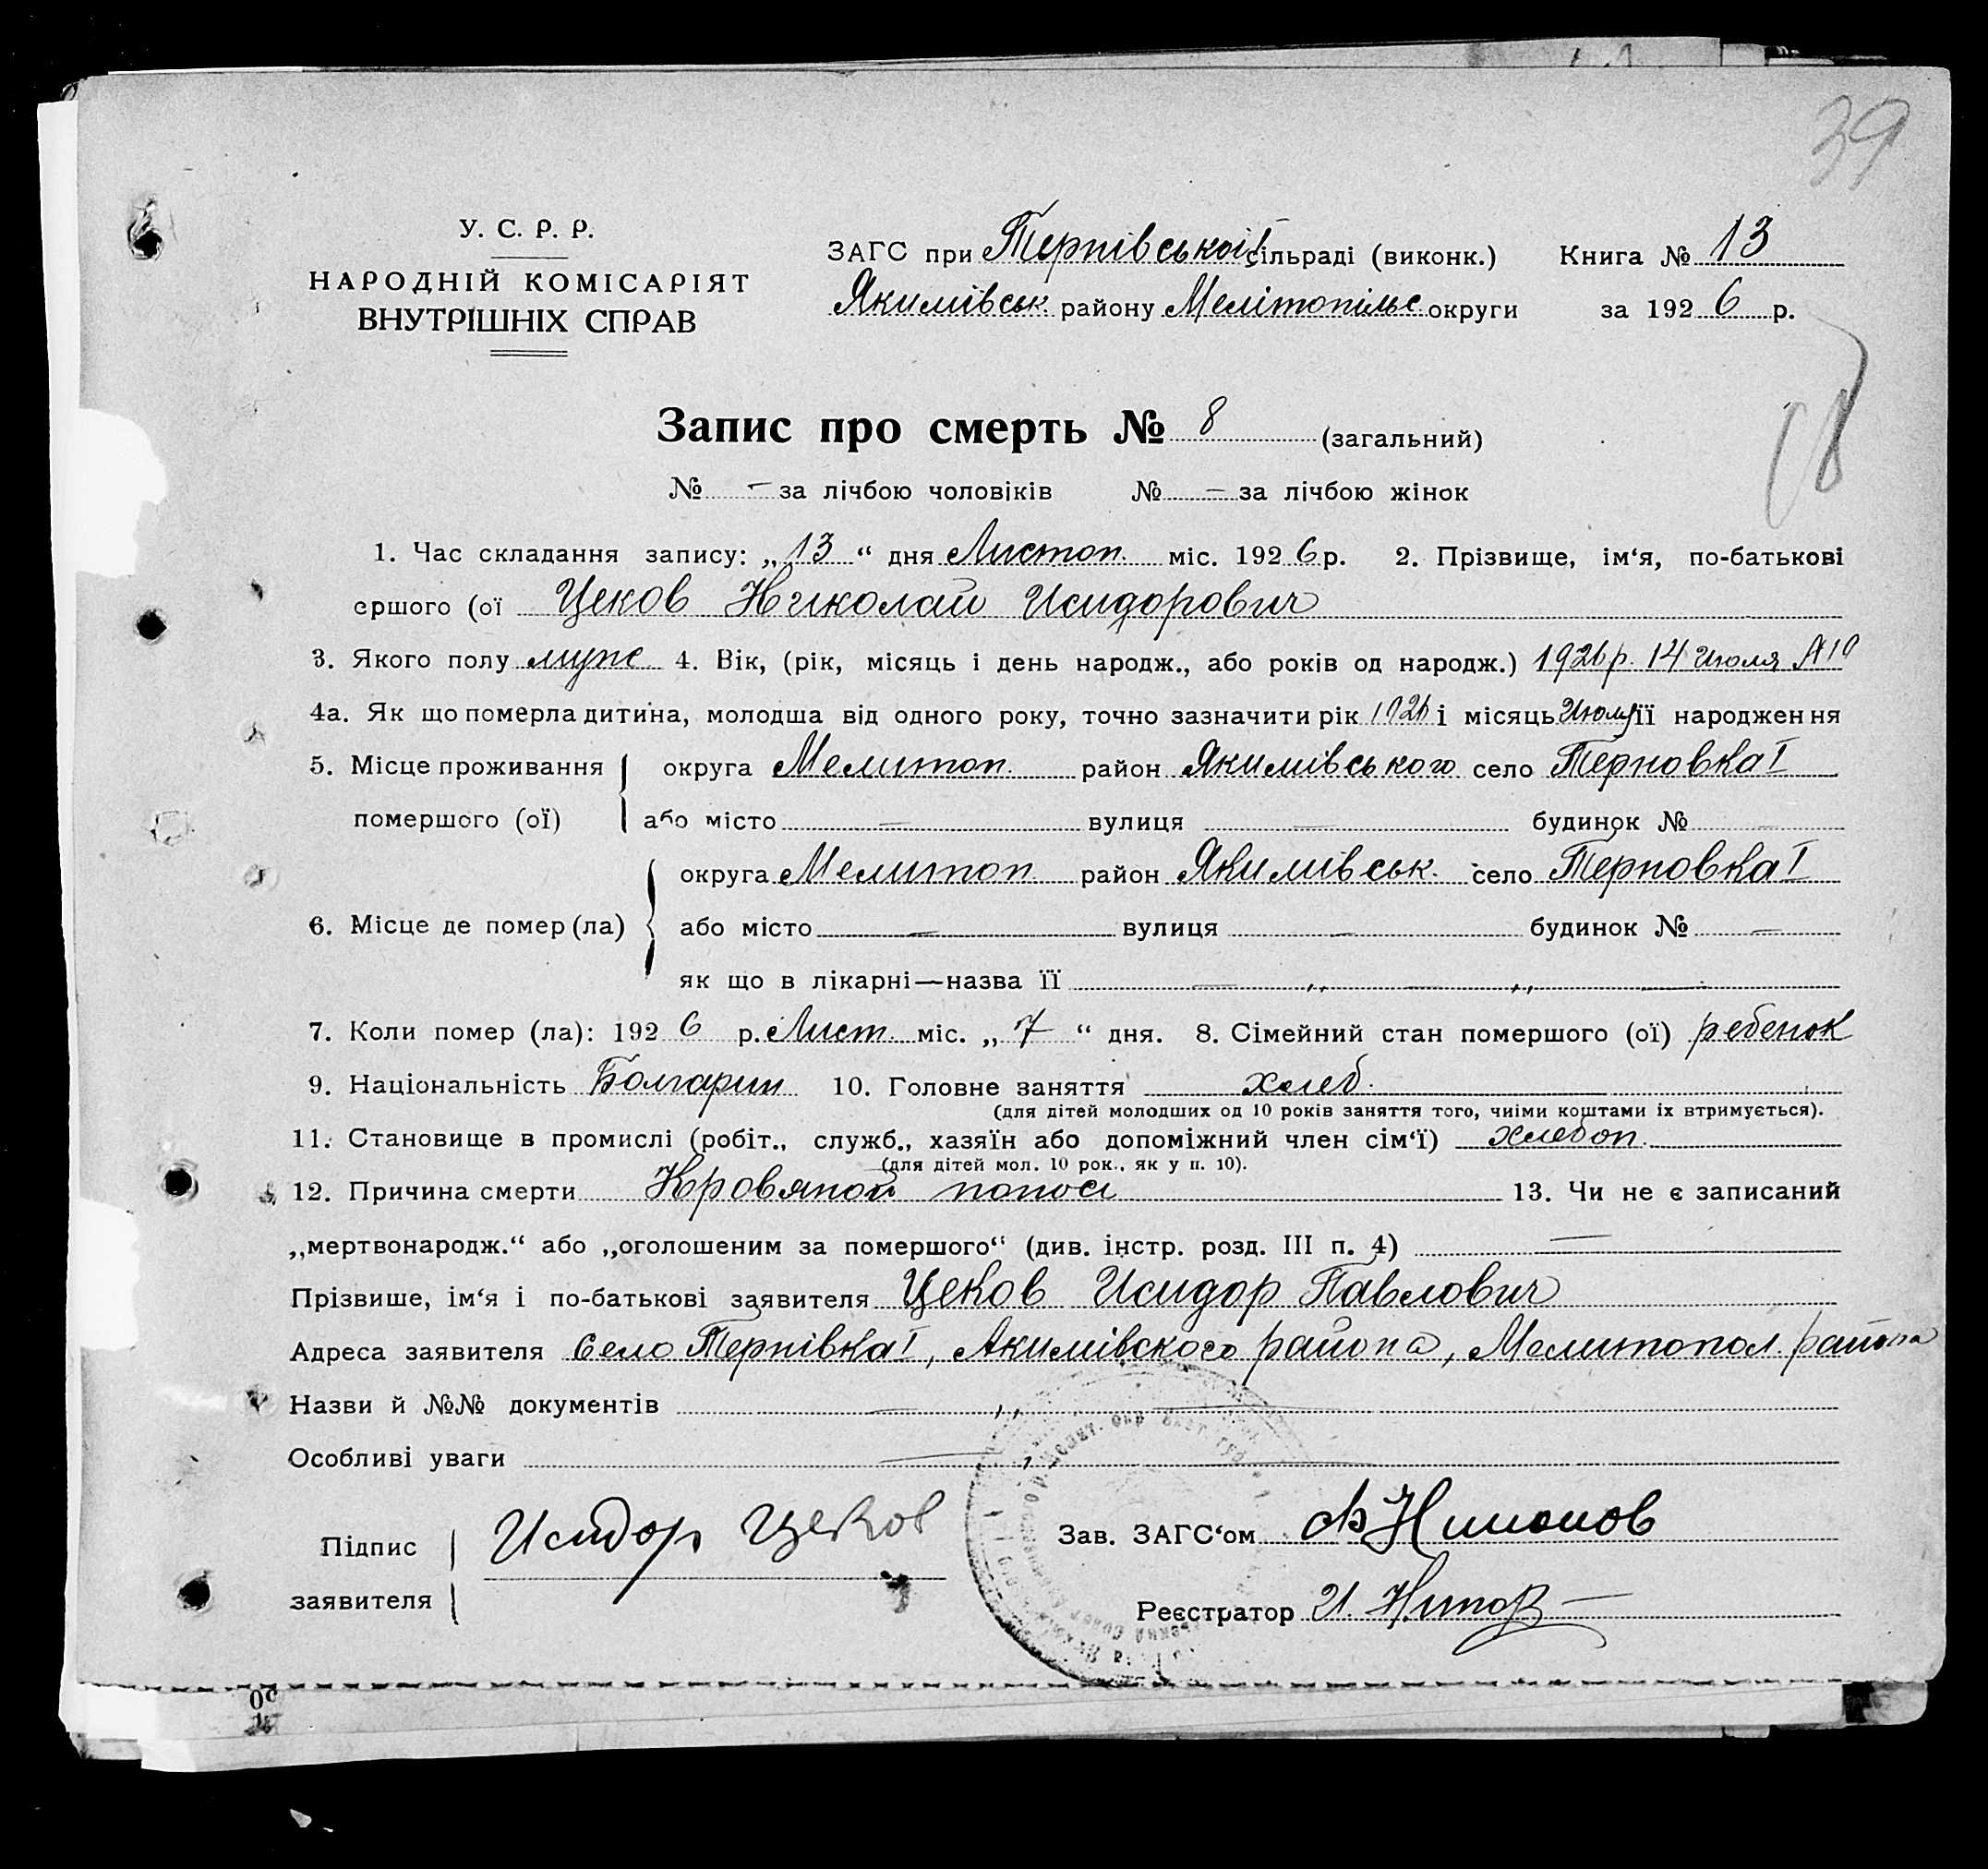 39
У. С. Р. Р.
НАРОДНІЙ КОМІСАРІЯТ
ВНУТРІШНІХ СПРАВ
ЗАГС при Тернівській сільраді (виконк.) Книга № 13
Якимівськ. району Мелітопільс округи за 1926 р.
18
Запис про смерть № 8 (загальний)
№ – за лічбою чоловіків № – за лічбою жінок
1. Час складання запису: „13“ дня Листоп. міс. 1926 р. 2. Прізвище, ім‘я, по-батькові
ершого (ої Цеков Николай Исидорович
3. Якого полу муж 4. Вік, (рік, місяць і день народж., або років од народж.) 1926 р. 14 Июля
4а. Як що померла дитина, молодша від одного року, точно зазначити рік 1926 і місяць Июля її народження
5. Місце проживання округа Мелитоп. район Якимівського село Терновка I
помершого (ої) або місто — вулиця — будинок № —
округа Мелитоп район Якимівськ. село Терновка I
6. Місце де помер (ла) або місто — вулиця — будинок № —
як що в лікарні—назва її — „ — „ —
7. Коли помер (ла): 1926 р. Лист. міс. „7“ дня. 8. Сімейний стан помершого (ої) ребенок
9. Національність Болгарин 10. Головне заняття хлеб.
(для дітей молодших од 10 років заняття того, чиїми коштами їх втримується).
11. Становище в промислі (робіт., служб., хазяїн або допоміжний член сім‘ї) хлебоп.
(для дітей мол. 10 рок., як у п. 10).
12. Причина смерти Кровяной понос 13. Чи не є записаний
„мертвонародж.“ або „оголошеним за помершого“ (див. інстр. розд. III п. 4) —
Прізвище, ім‘я і по-батькові заявителя Цеков Исидор Павлович
Адреса заявителя Село Тернівка I, Акимівского района, Мелитопол. района
Назви й №№ документів — „ —
Особливі уваги — „ —
Підпис заявителя Исидор Цеков
Зав. ЗАГС‘ом
Реєстратор И.